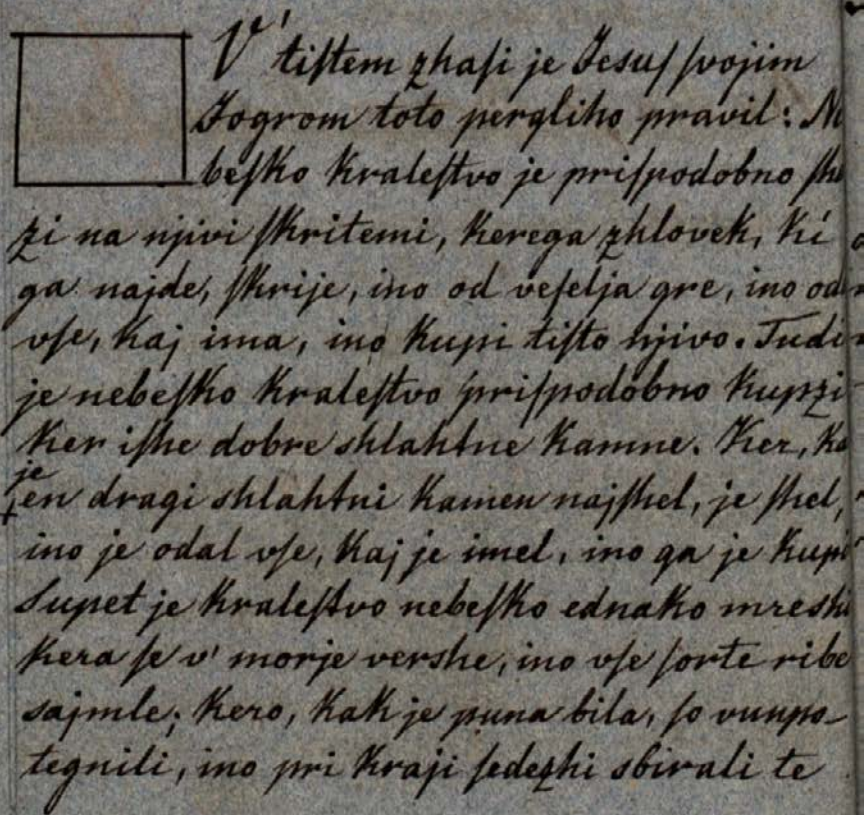 V' tiſtem zhaſi je Jesuſ ſvojim
Jogrom toto pergliho pravil: Ne
beſko kraleſtvo je priſpodobno ſha
zi na njivi ſkritemi, kerega zhlovek, ki
ga najde, ſkrije, ino od veſelja gre, ino oda
vſe, kaj ima, ino kupi tiſto njivo. Tudi
je nebeſko kraleſtvo priſpodobno kupzi
ker iſhe dobre shlahtne kamne. Ker, ka
je
+en dragi shlahtni kamen najſhel, je ſhel,
ino je odal vſe, kaj je imel, ino ga je kupi
Supet je kraleſtvo nebeſko ednako mreshi
kera ſe v' morje vershe, ino vſe ſorte ribe
sajmle; kero, kak je puna bila, ſo vunpo-
tegnili, ino pri kraji ſedezhi sbirali te